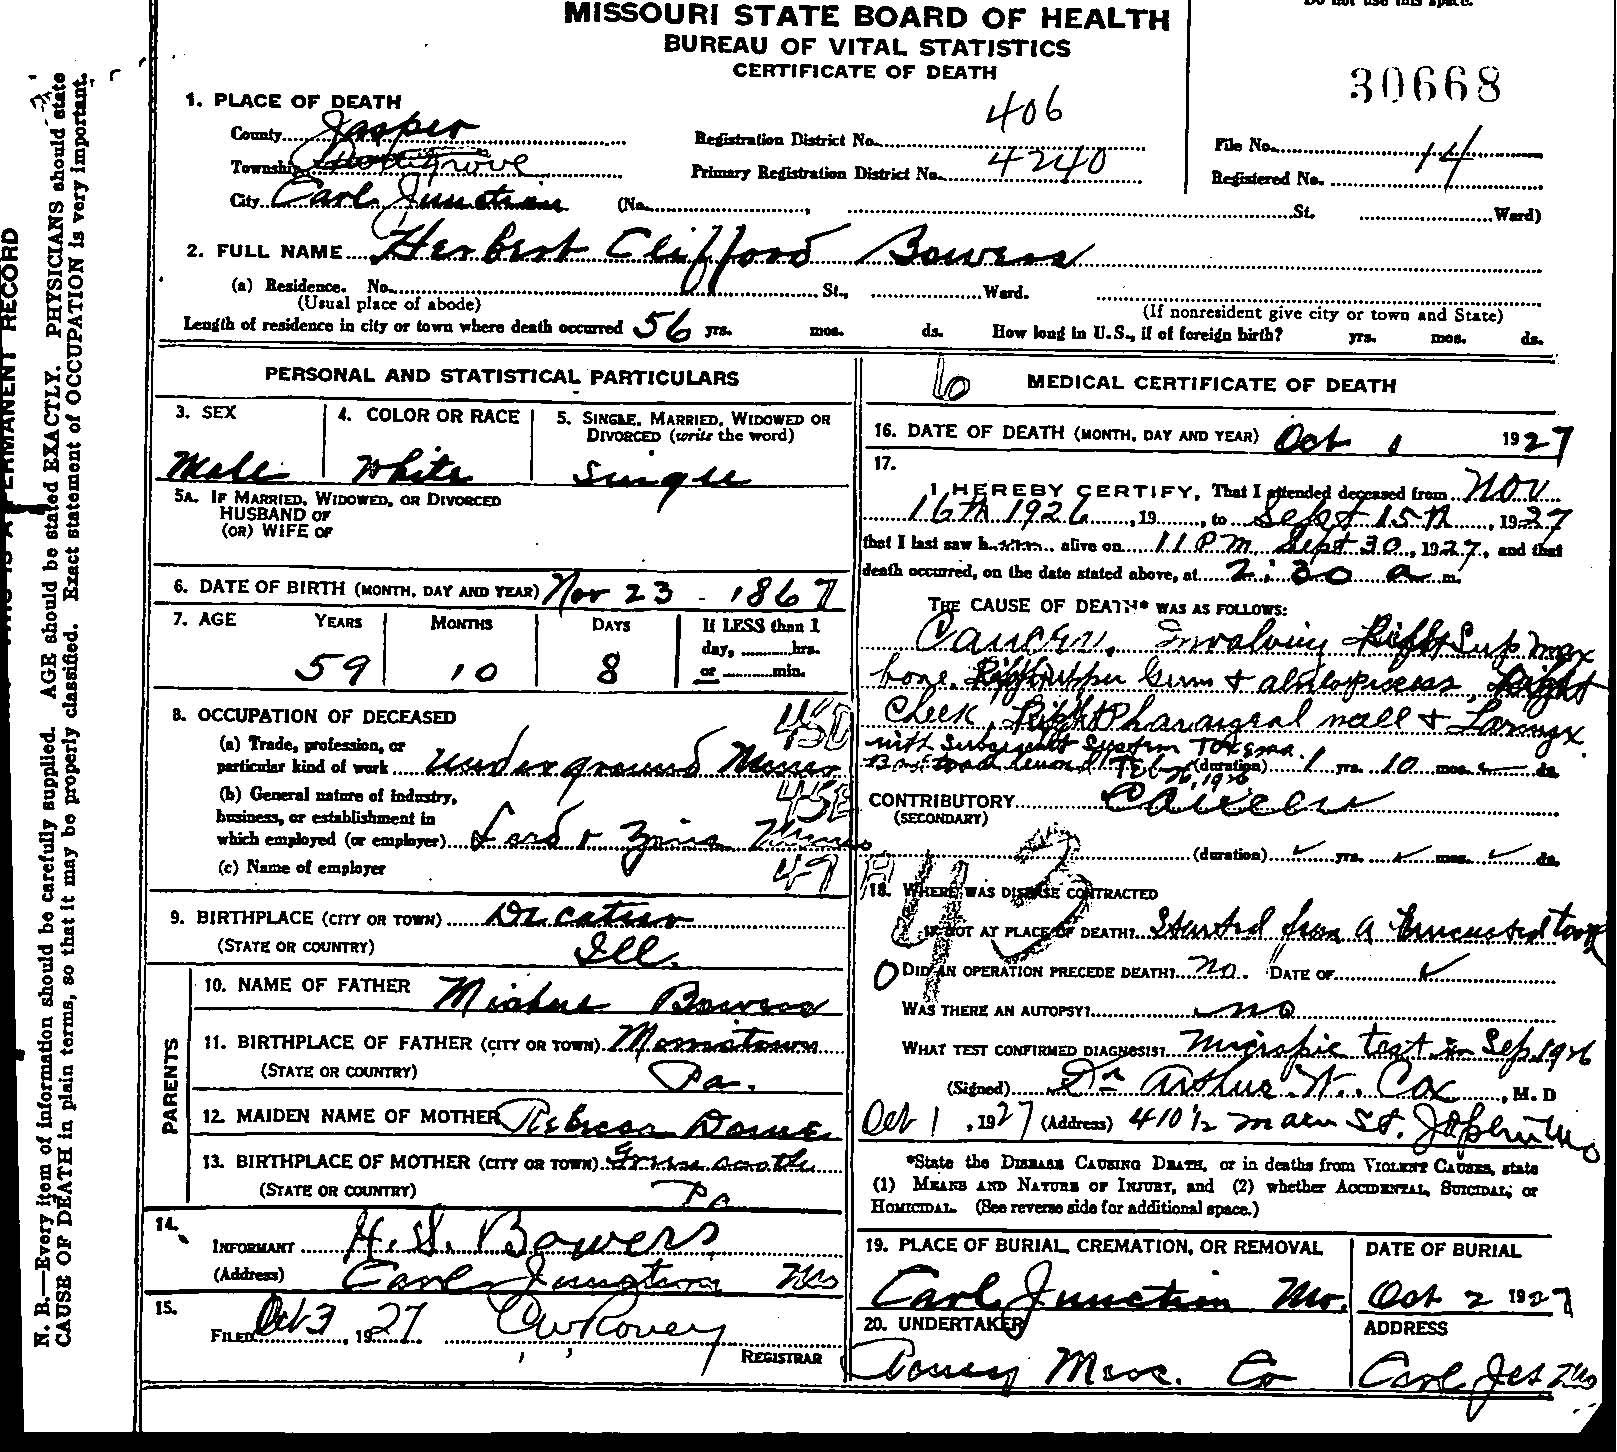 MISSOURI STATE BOARD OF HEALTH
BUREAU OF VITAL STATISTICS
CERTIFICATE OF DEATH
30668
1. PLACE OF DEATH
County Jasper
Registration District No. 406
File No. 14
Township
Primary Registration District No. 4240
Registered No.
City Carl Junction (No. , St. Ward)
2. FULL NAME Herbert Clifford Bowers
(a) Residence. No. St., Ward.
(Usual place of abode) (If nonresident give city or town and State)
Length of residence in city or town where death occurred 56 yrs. mos. ds. How long in U.S., if of foreign birth? yrs. mos. ds.
PERSONAL AND STATISTICAL PARTICULARS
3. SEX 4. COLOR OR RACE 5. SINGLE, MARRIED, WIDOWED OR DIVORCED (write the word)
Male White Single
5A. IF MARRIED, WIDOWED, OR DIVORCED
HUSBAND OF
(OR) WIFE OF
6. DATE OF BIRTH (MONTH, DAY AND YEAR) Nov 23 - 1867
7. AGE YEARS MONTHS DAYS If LESS than 1 day, hrs. or min.
59 10 8
8. OCCUPATION OF DECEASED
(a) Trade, profession, or
particular kind of work Underground Miner
(b) General nature of industry,
business, or establishment in
which employed (or employer) Lead & Zinc Mines
(c) Name of employer
9. BIRTHPLACE (CITY OR TOWN) Decatur
(STATE OR COUNTRY) Ill.
PARENTS
10. NAME OF FATHER Bowers
11. BIRTHPLACE OF FATHER (CITY OR TOWN)
(STATE OR COUNTRY) Pa.
12. MAIDEN NAME OF MOTHER Rebecca
13. BIRTHPLACE OF MOTHER (CITY OR TOWN)
(STATE OR COUNTRY) Pa
14.
INFORMANT H. S. Bowers
(Address) Carl Junction Mo
15.
FILED Oct 3, 1927 CW Roney
REGISTRAR
6 MEDICAL CERTIFICATE OF DEATH
16. DATE OF DEATH (MONTH, DAY AND YEAR) Oct 1 1927
17.
I HEREBY CERTIFY, That I attended deceased from Nov
16th 1926, 19 , to Sept 15th, 1927
that I last saw h alive on 11 PM Sept 30, 1927, and that
death occurred, on the date stated above, at 2:30 a m.
THE CAUSE OF DEATH* WAS AS FOLLOWS:
Cancer, Involving Right Sup Max
bone. Right upper Gum &
Cheek, Right Pharangeal wall & Larnyx
with
(duration) 1 yrs. 10 mos. ds.
CONTRIBUTORY Cancer
(SECONDARY)
(duration) yrs. mos. ds.
43
18. WHERE WAS DISEASE CONTRACTED
IF NOT AT PLACE OF DEATH? Started from a
DID AN OPERATION PRECEDE DEATH? No. DATE OF
WAS THERE AN AUTOPSY? no
WHAT TEST CONFIRMED DIAGNOSIS? test in Sep 1926
(Signed) Dr Arthur W. Cox, M. D
Oct 1, 1927 (Address) 410 1/2 Main St. Joplin Mo
*State the DISEASE CAUSING DEATH, or in deaths from VIOLENT CAUSES, state
(1) MEANS AND NATURE OF INJURY, and (2) whether ACCIDENTAL, SUICIDAL, or
HOMICIDAL. (See reverse side for additional space.)
19. PLACE OF BURIAL, CREMATION, OR REMOVAL DATE OF BURIAL
Carl Junction Mo. Oct 2 1927
20. UNDERTAKER ADDRESS
Roney Merc. Co Carl Jct Mo
N. B.—Every item of information should be carefully supplied. AGE should be stated EXACTLY. PHYSICIANS should state
CAUSE OF DEATH in plain terms, so that it may be properly classified. Exact statement of OCCUPATION is very important.